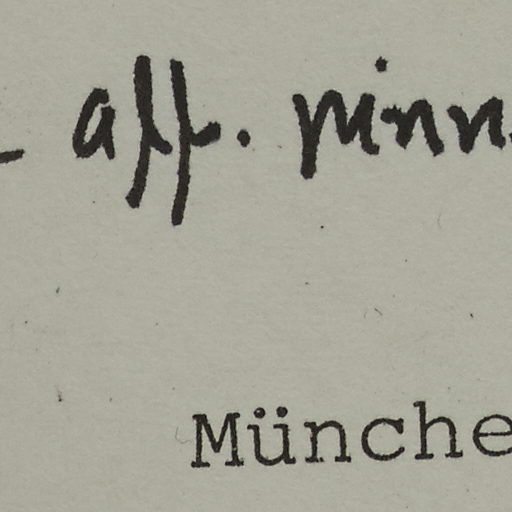 - aff. pinn
Münche